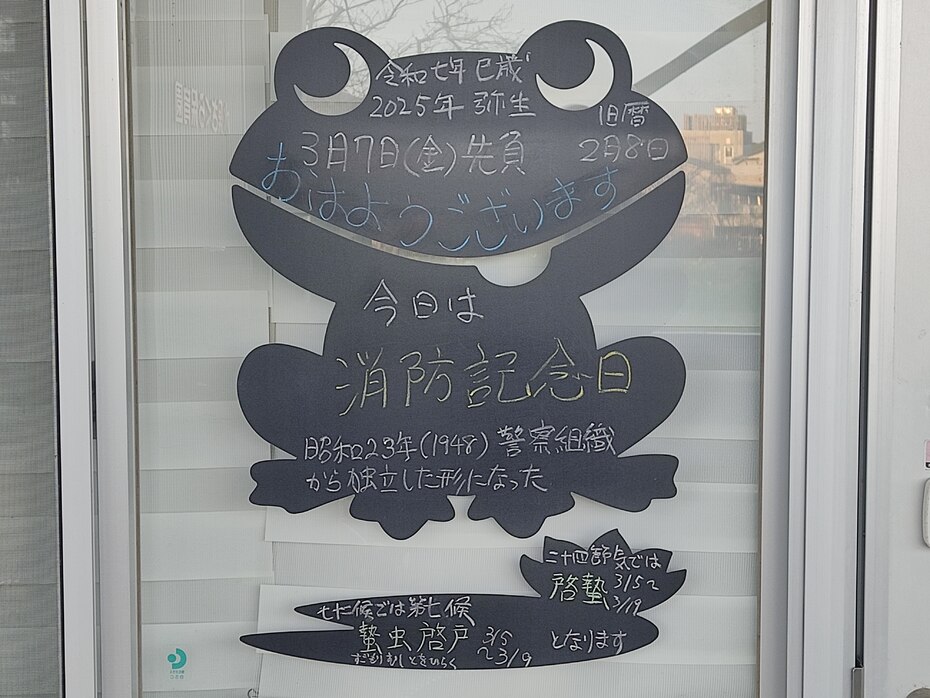 令和七年 巳歳
2025年 弥生
旧暦
3月7日(金)先負
2月8日
おはようございます
今日は
消防記念日
昭和23年(1948) 警察組織
から独立した形になった
二十四節気では
啓蟄 3/5~
3/19
七十二候では第七候
蟄虫啓戸 3/5
~3/9
すごもりむしとをひらく
となります